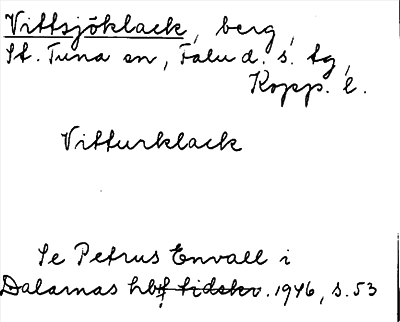 Vittsjöklack, berg,
St. Tuna sn, Falu d. s. tg,
Kopp. l.
Vitturklack
Se Petrus Envall i
Dalarnas hbf tidskr. 1946, s. 53